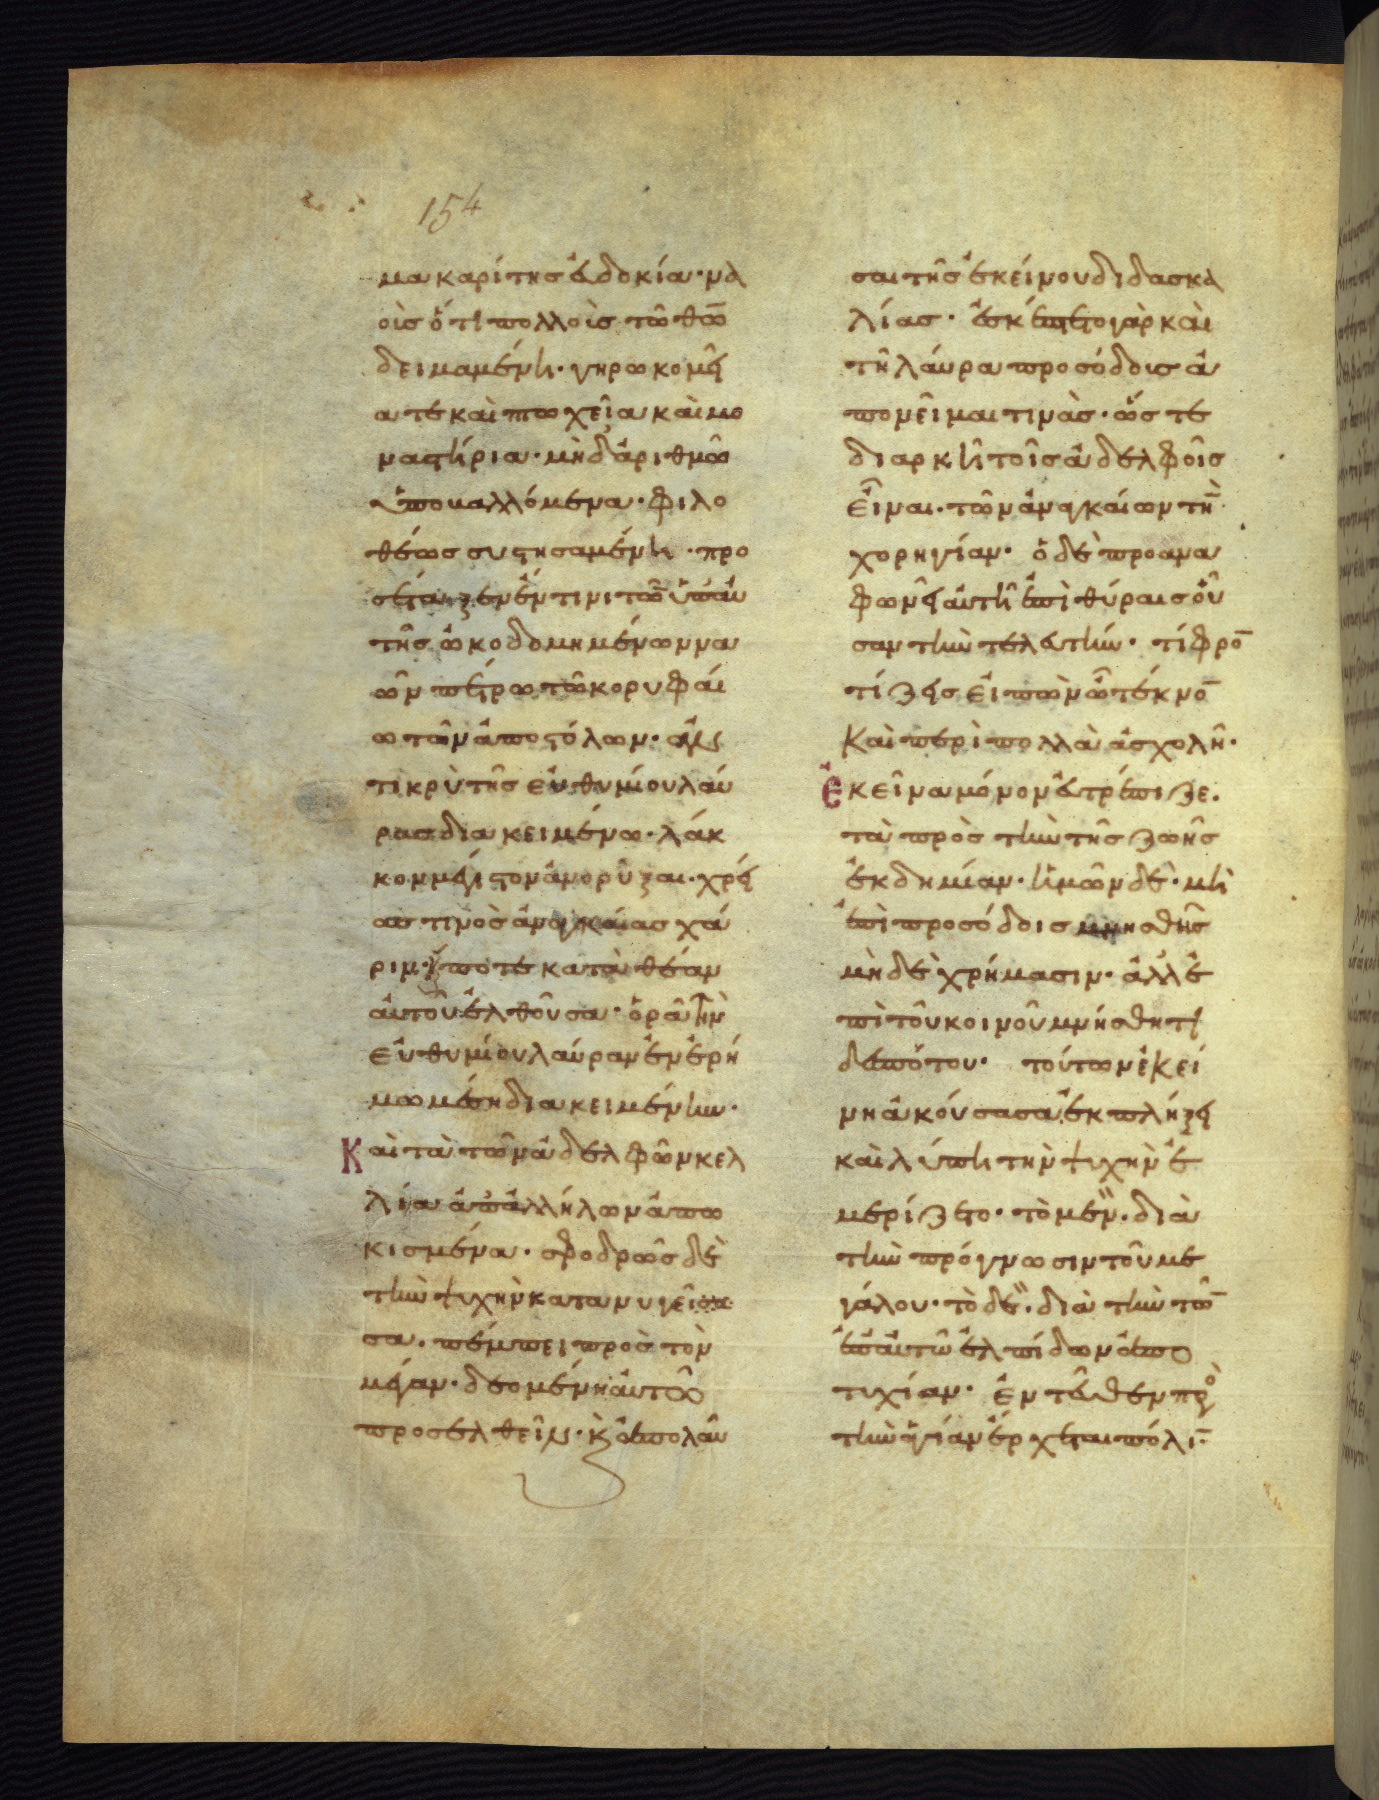 154
μακαρίτης ἐυδοκία· να
οὺς ὅτι πολλοὺς τῶ θ̅ω̅
δειμαμένη· γηρωκομεῖ
α τε καὶ πτωχεῖα καὶ μο
ναστήρια· μὴδ᾽ ἀριθμῶ
ὑποβαλλόμενα· φιλο
θέως συστησαμένη· προ
σέταξεν ἔν τινι τῶν ὑπ᾽ αυ
τῆς ὠκοδομημένων να
ῶν πέτρω τῶ κορυφαί
ω τῶν ἀποστόλων· ἀν
τικρὺ τῆς ἐυθυμίου λαύ
ρας διακειμένω· λάκ
κον μέγιστον ἀνορύξαι· χρεί
ας τινὸς ἀναγκαίας χά
ριν· ἥ ποτε κατὰ θέαν
ἀυτοῦ ἐλθοῦσα· ὁρᾶ τὴν
ἐυθυμίου λαύραν ἐν ἐρή
μω μέση διακειμένην·
Καὶ τὰ τῶν ἀδελφῶν κελ
λία ἀπ᾽ ἀλλήλων ἀπω
κισμένα· σφοδρῶς δὲ
τὴν ψυχὴν κατανυγεῖ
σα· πέμπει πρὸς τὸν
μέγαν· δεομένη ἀυτοῦ
προσελθεῖν· κ ἀπολαῦ
σαι τῆς ἐκείνου διδασκα
λίας· ἐσκέπτετο γὰρ καὶ
τῆ λάυρα προσόδους ἀ
πονεῖμαι τινὰς· ὥστε
διαρκῆ τοῖς ἀδελφοῖς
εἶναι· τῶν ἀναγκαίων τὴν
χορηγίαν· ὁ δὲ προανα
φωνεῖ ἀυτῆ ἐπὶ θύραις οὖ
σαν τὴν τελευτήν· τί φρο
τίζεις εἰπὼν ὦ τέκνο
Καὶ περὶ πολλὰ ἀσχολῆ·
Ἐκεῖνα μόνον ἐυτρέπιζε.
τὰ πρὸς τὴν τῆς ζωῆς
ἐκδημίαν· ἡμῶν δὲ· μὴ
ἐπὶ προσόδοις μνησθῆς
μὴδὲ χρήμασιν· ἀλλ᾽ ἐ
πὶ τοῦ κοινοῦ μνήσθητι
δεσπότου· τούτων ἐκεί
νη ἀκούσασα ἐκπλήξει
καὶ λύπη τὴν ψυχὴν ἐ
μερίζετο· τὸ μὲν· διὰ
τὴν πρόγνωσιν τοῦ με
γάλου· τὸ δὲ· διὰ τὴν τῶ
ἐπ᾽ ἀυτῶ ἐλπίδων ἀπο
τυχίαν· ἐντεῦθεν προ
τὴν ἁγίαν ἔρχεται πόλι